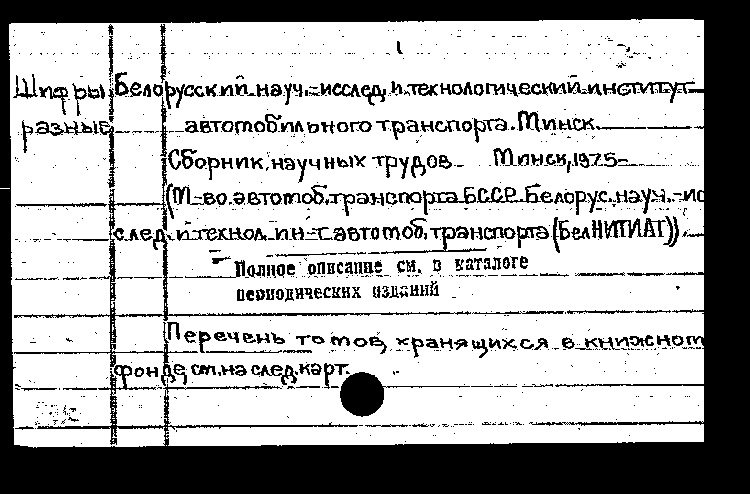 Шифры Белорусский науч.-исслед. и технологический институт
разные автомобильного транспорта. Минск.
Сборник научных трудов. Минск, 1975-
(М-во автомоб. транспорта БССР. Белорус. науч.-ис
след. и технол. ин-т автомоб. транспорта (БелНИТИАТ)).
Полное описание см. в каталоге
периодических изданий
Перечень томов, хранящихся в книжном
фонде, см. на след. карт.